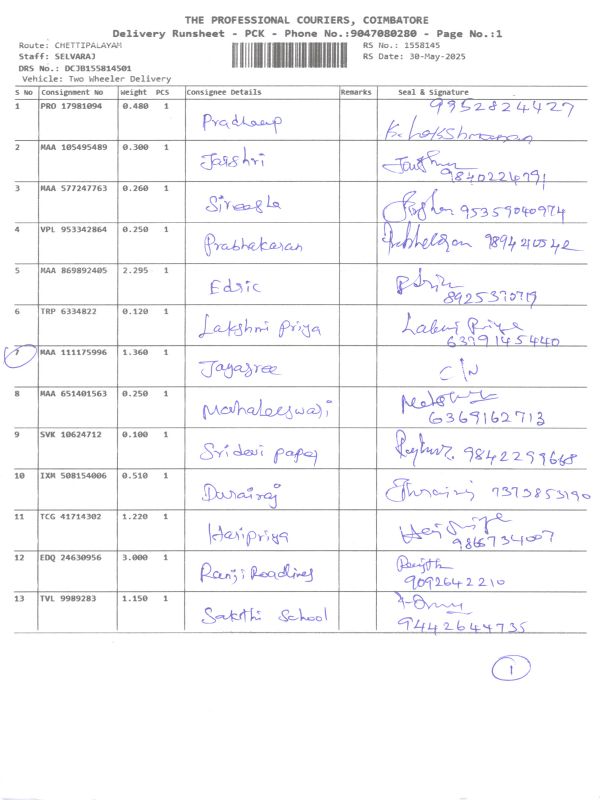 THE PROFESSIONAL COURIERS, COIMBATORE
Delivery Runsheet - PCK - Phone No.:9047080280 - Page No.:1
Route: CHETTIPALAYAM RS No.: 1558145
Staff: SELVARAJ RS Date: 30-May-2025
DRS No.: DCJB155814501
Vehicle: Two Wheeler Delivery
S No Consignment No Weight PCS Consignee Details Remarks Seal & Signature
1 PRO 17981094 0.480 1 Pradheep 9952824427
2 MAA 105495489 0.300 1 Jaishri
9840224791
3 MAA 577247763 0.260 1 95359040974
4 VPL 953342864 0.250 1 Prabhakaran
5 MAA 869892405 2.295 1 Edric
6 TRP 6334822 0.120 1 Lakshmi Priya
6379145440
7 MAA 111175996 1.360 1 Jayasree C/N
8 MAA 651401563 0.250 1 Mahaleeswari
6369162713
9 SVK 10624712 0.100 1 Sridevi paper
10 IXM 508154006 0.510 1 Durairaj 7373853190
11 TCG 41714302 1.220 1 Haripriya
12 EDQ 24630956 3.000 1 Ranji Readines Ranjith
9092642210
13 TVL 9989283 1.150 1 Sakthi School
9442644735
1